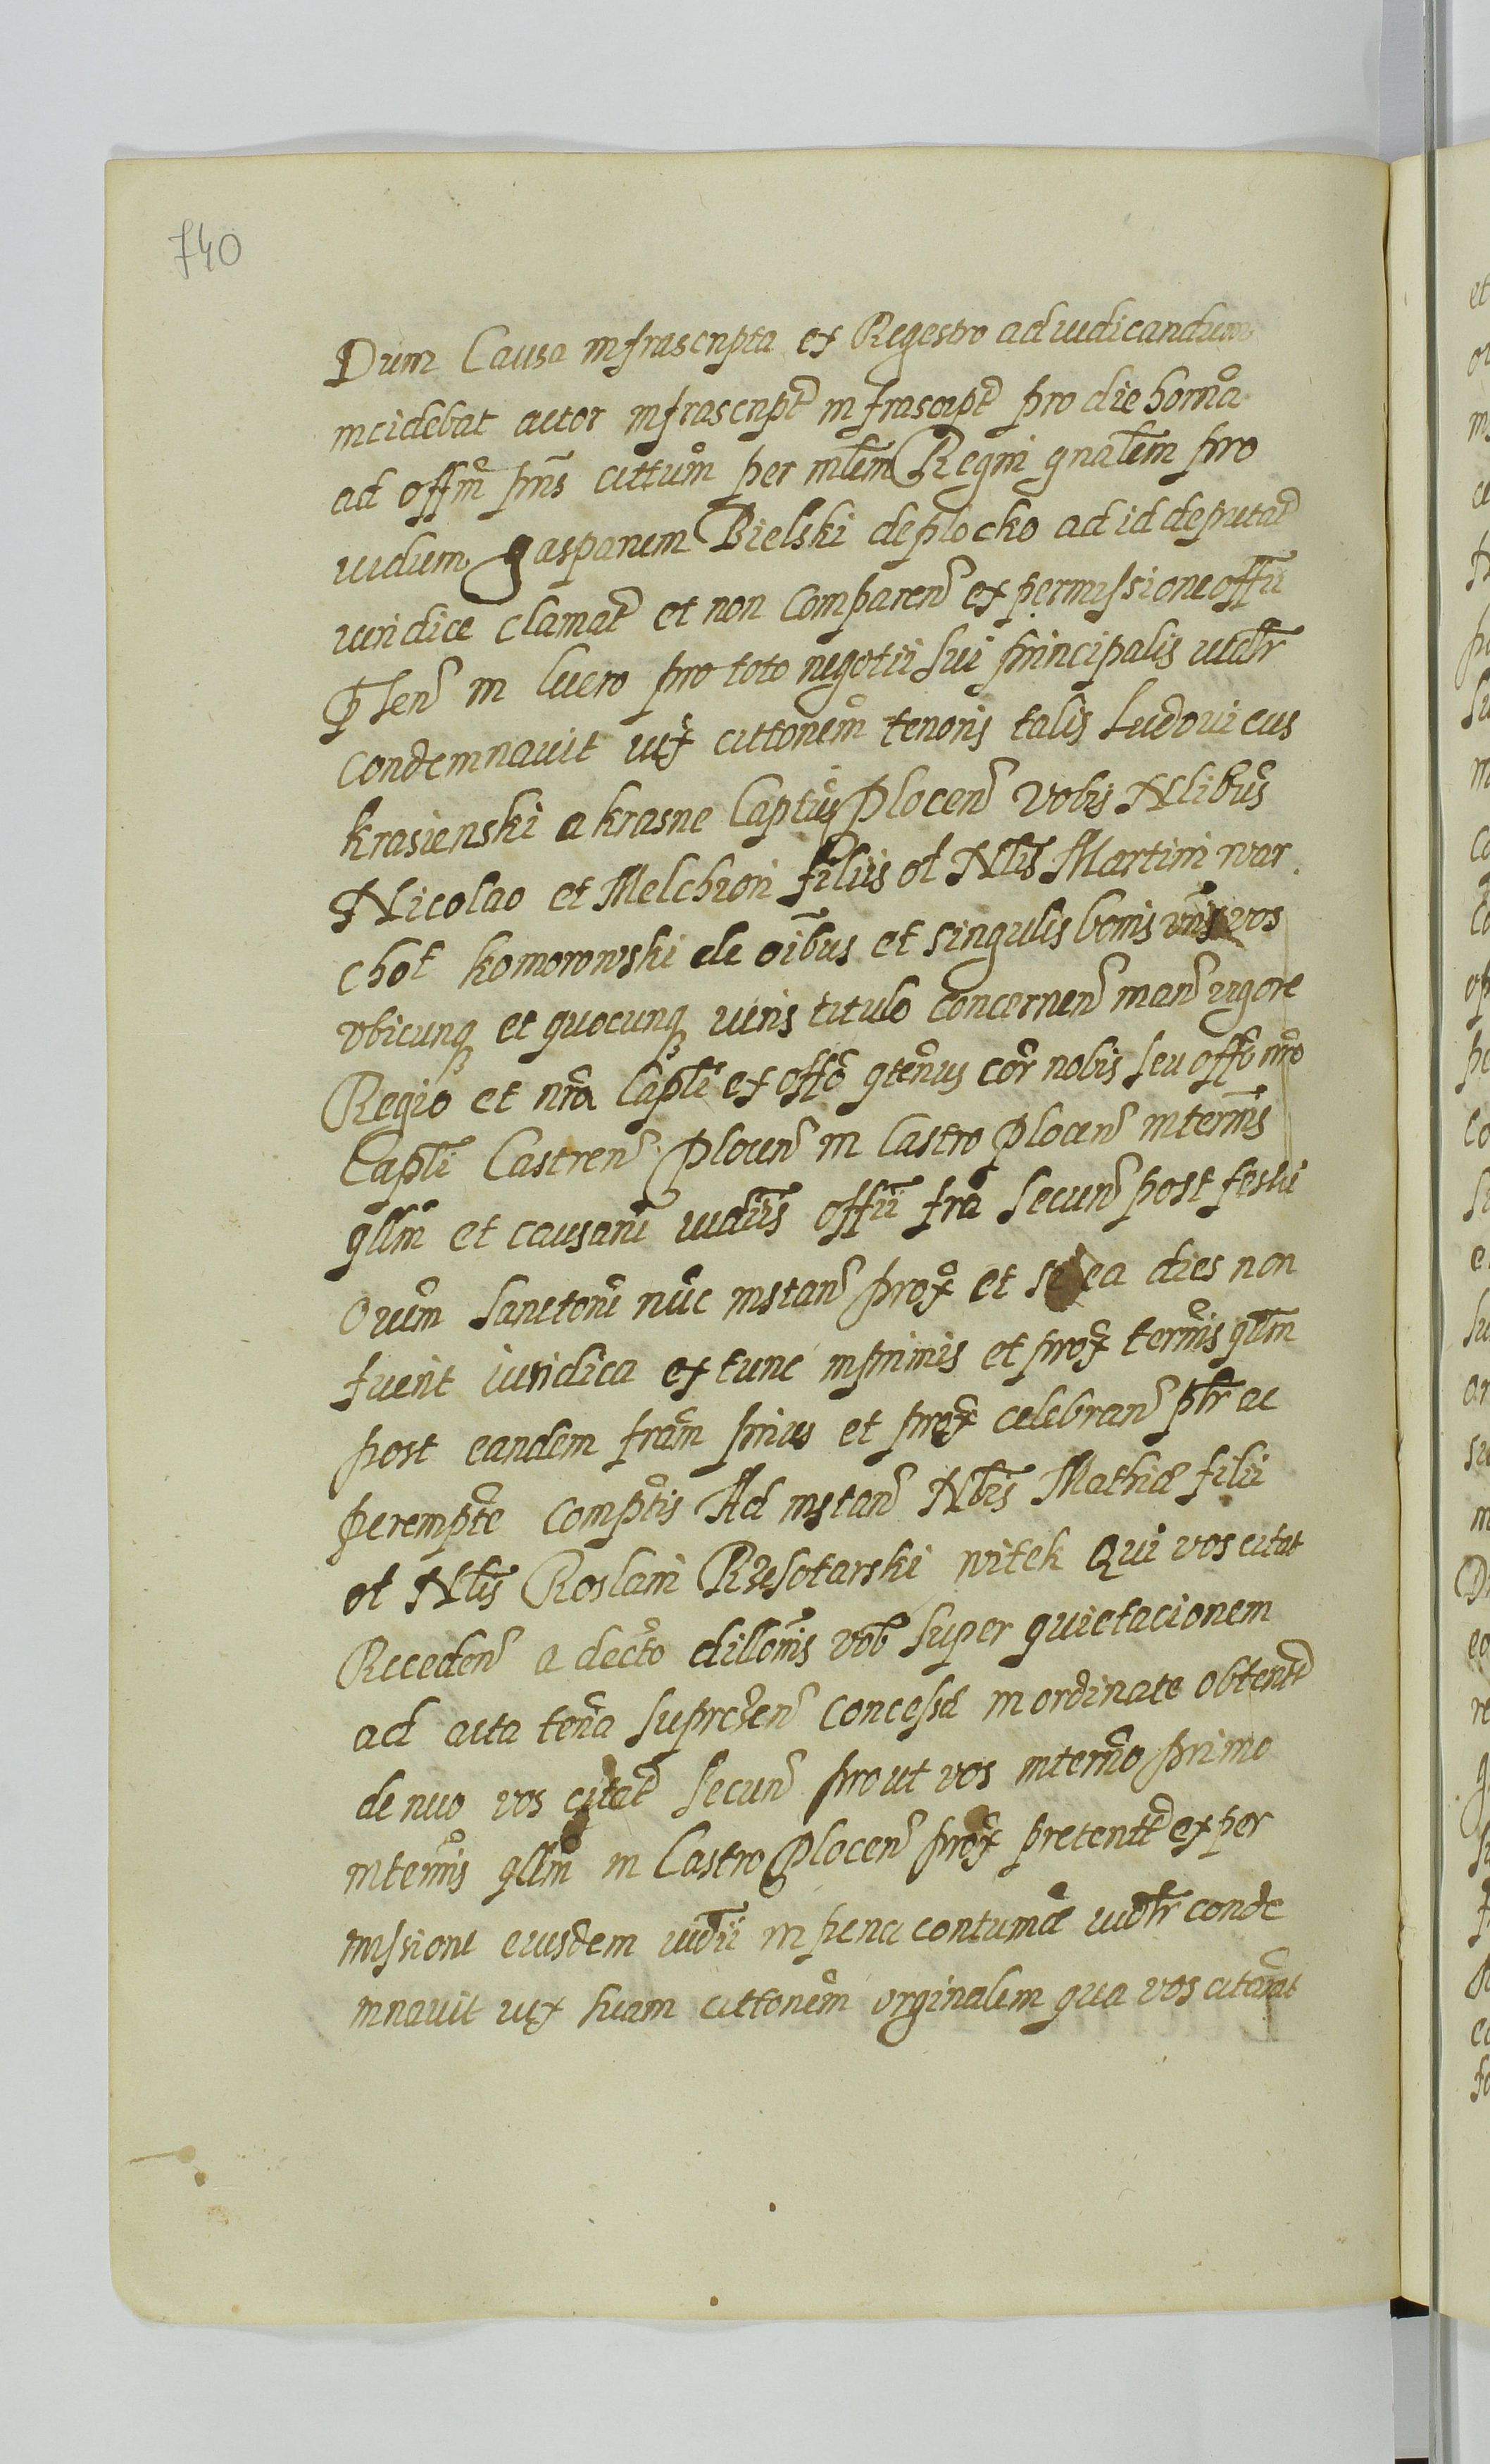 740
Dum Causa infrascripta ex Regestro adiudicandum
incidebat actor infrascript infrascript pro die horna
ad offm pns cittum per mlem Regni gnalem pro
iudum gasparem Bielski de plocko ad id deputat
iuridice clamat et non Comparen ex permissione offii
Psen in lucro pro toto negotii sui principalis iudlr
condemnavit iux cittonem tenoris talis Ludovicus
krasienski a krasne Captus Plocen Vobis Nlibus
Nicolao et Melchiori filiis ol Nlis Martini war
chol komorowski de oibus et singulis bonis vris vos
vbicunq et quocunq iuris titulo concernen man vigore
Regio et nra Capli ex offo qtenus cor nobis seu offo nro
Capli Castren Plocen in Castro Plocen in termis
qllm et causarum iudiis offii fra secun post festu
Ouim Sanctoru nuc instan prox et si ea dies non
fuerit iuridica ex tunc in primis et prox termis qllm
post eandem fram prius et prox celebran ptr ac
perempte comptis Ad instan Nblis Mathiæ filii
ol Nlis Roslani Rzesotarski witek Qui vos citat
Receden a decto dillonis vob super quietacionem
ad acta terra Supreren concessæ inordinate obtent
de nuo vos citat secun prout vos in termo primo
in termis qllm in Castro Plocen prox pretentt ex per
missione eiusdem iudii in pena contumæ iudlr conde
mnavit iux suam cittonem orginalem qua vos citarat